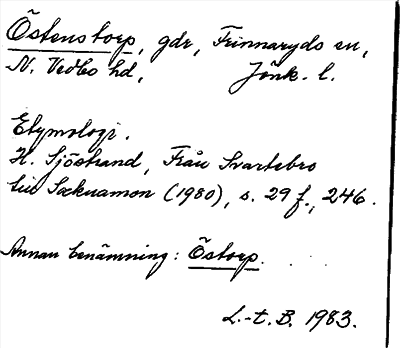 Östenstorp, gdr, Frinnaryds sn,
N. Vedbo hd, Jönk. l.
Etymologi.
H. Sjöstrand, Från Svartebro
till Sœknamon (1980), s. 29 f., 246.
Annan benämning: Östorp.
L.-t. B. 1983.